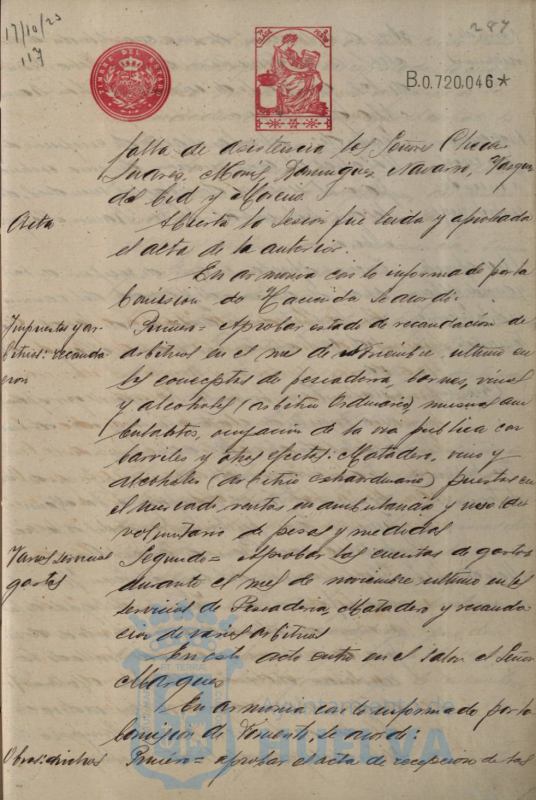 17/10/23
117
287
TIMBRE DEL ESTADO
B.0.720.046*
falta de asistencia los Señores Checa
Suarez, Moris, Dominguez Navarro, Vazquez
del Cid y Moreno.
Acta
Abierta la sesión fué leida y aprobada
el acta de la anterior.
En armonia con lo informado por la
Comision de Hacienda se acordó:
Impuestos y ar-
bitrios: recauda-
cion
Primero = Aprobar estado de recaudación de
arbitrios en el mes de Noviembre ultimo en
los conceptos de pescaderia, carnes, vinos
y alcoholes (arbitrio Ordinario), musicas am-
bulantes, ocupación de la via publica con
barriles y otros efectos: Matadero, vino y
alcoholes (arbitrio extraordinario) puestos en
el mercado, ventas en ambulancia y uso
voluntario de pesas y medidas
Varios servicios
gastos
Segundo = Aprobar las cuentas de gastos
durante el mes de noviembre ultimo en los
servicios de Pescaderia, Matadero y recauda-
cion de varios arbitrios
En este acto entra en el salon el Señor
Marquez
En armonia con lo informado por la
Comision de Fomento, se acordó:
Obras:
Primero = aprobar el acta de recepcion de las
Ayuntamiento de
HUELVA